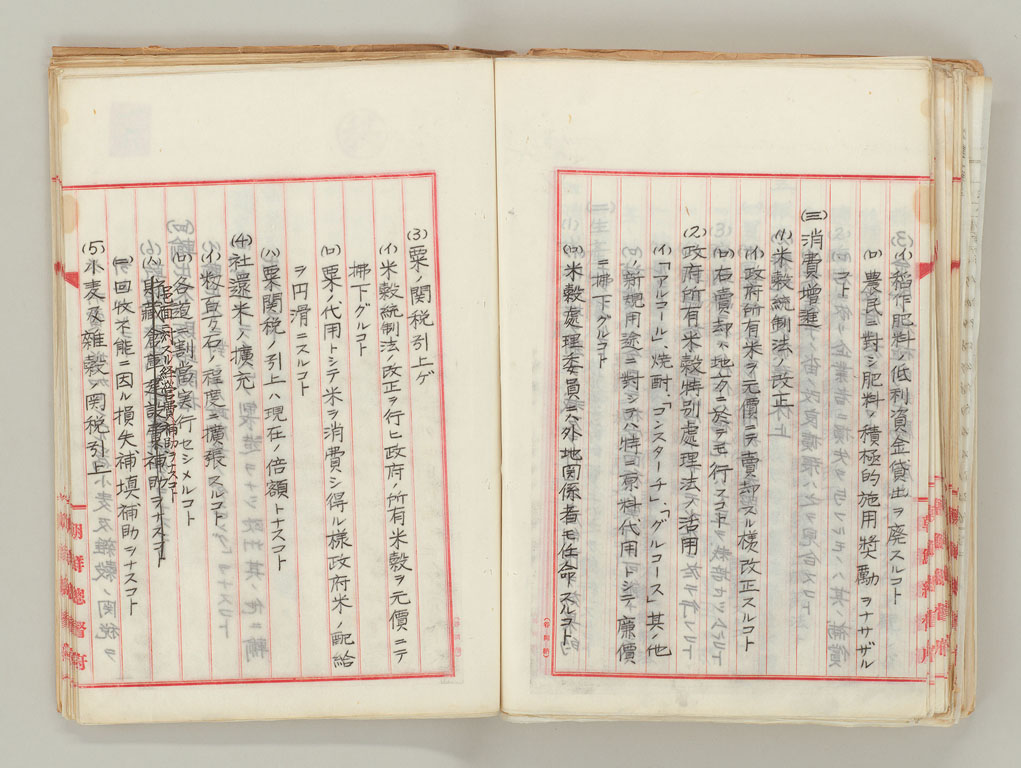 (イ)稲作肥料ノ低利資金貸出ヲ廃スルコト
(ロ)農民ニ對シ肥料ノ積極的施用奬勵ヲナサザル
コト
(三)消費増進
(1)米穀統制法ノ改正
(イ)政府所有米ヲ元價ニテ賣却スル様改正スルコト
(ロ)右賣却ハ地方ニ於テモ行フコト
(2)政府所有米穀特別處理法ノ活用
(イ)「アルコール」、焼酎、「コンスターチ」、「グルコース」其ノ他
新規用途ニ對シテハ特ニ原料代用トシテ廉價
ニ拂下グルコト
(ロ)米穀處理委員ニハ外地関係者モ任命スルコト
(3)粟ノ関税引上ゲ
(イ)米穀統制法ノ改正ヲ行ヒ政府ノ所有米穀ヲ元價ニテ
拂下グルコト
(ロ)粟ノ代用トシテ米ヲ消費シ得ル様政府米ノ配給
ヲ円滑ニスルコト
(ハ)粟関税ノ引上ハ現在ノ倍額トナスコト
(4)社還米ノ擴充
(イ)数百万石ノ程度ニ擴張スルコト
(ロ)各道ニ割當実行セシメルコト
邑面ニ対スル経営費補助ヲナスコト
(ハ)貯藏倉庫建設費補助ヲナスコト
(ニ)回收不能ニ因ル損失補填補助ヲナスコト
(5)小麦及雑穀ノ関税引上
朝鮮總督府